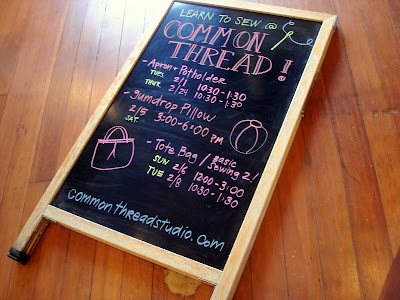 LEARN TO SEW @
COMMON
THREAD!
- Apron + Potholder
TUE 2/1 10:30-1:30
THUR 2/24 10:30-1:30
- Gumdrop Pillow
2/5 3:00-6:00 PM
SAT.
- Tote Bag / Basic Sewing 2!
SUN 2/6 12:00-3:00
TUE 2/8 10:30-1:30
commonthreadstudio.com